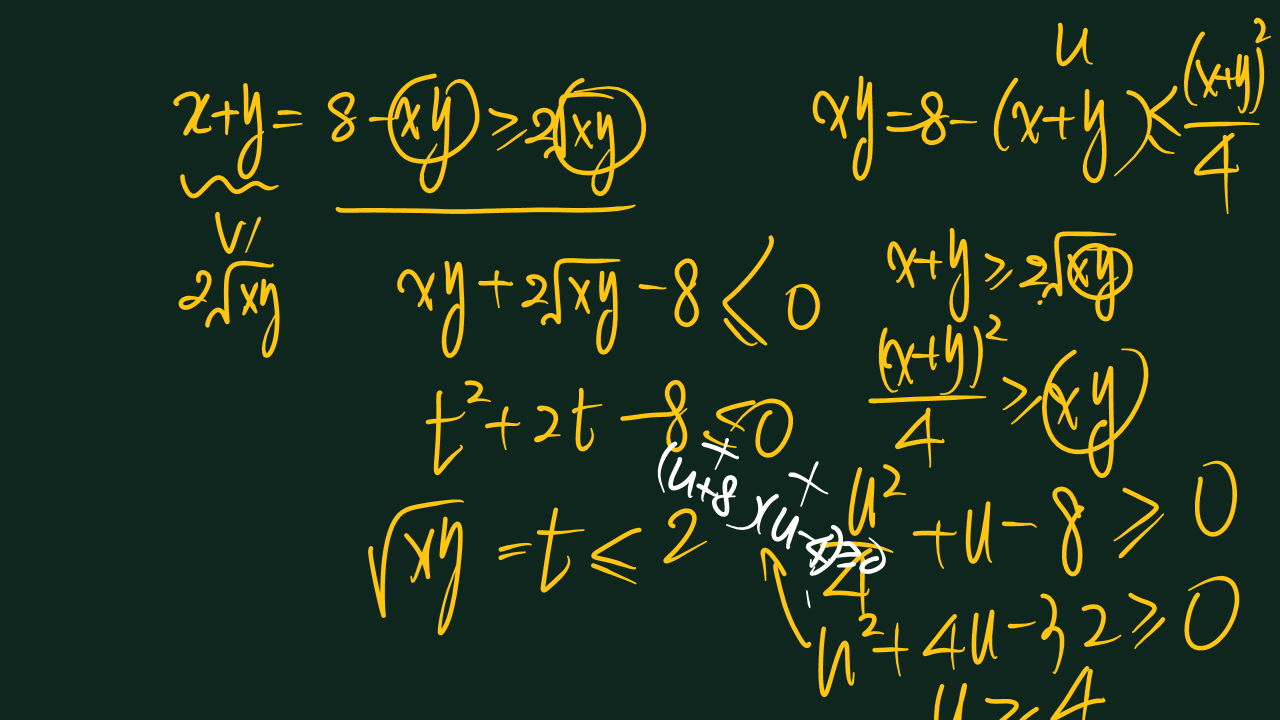 x+y = 8-xy ≥ 2√xy
V/
2√xy
xy + 2√xy - 8 ≤ 0
t² + 2t - 8 ≤ 0
√xy = t ≤ 2
u
xy = 8 - (x+y) ≤ (x+y)²/4
x+y ≥ 2√xy
(x+y)²/4 ≥ xy
u²/4 + u - 8 ≥ 0
+ +
(u+8)(u-4)≥0
u² + 4u - 32 ≥ 0
u ≥ 4